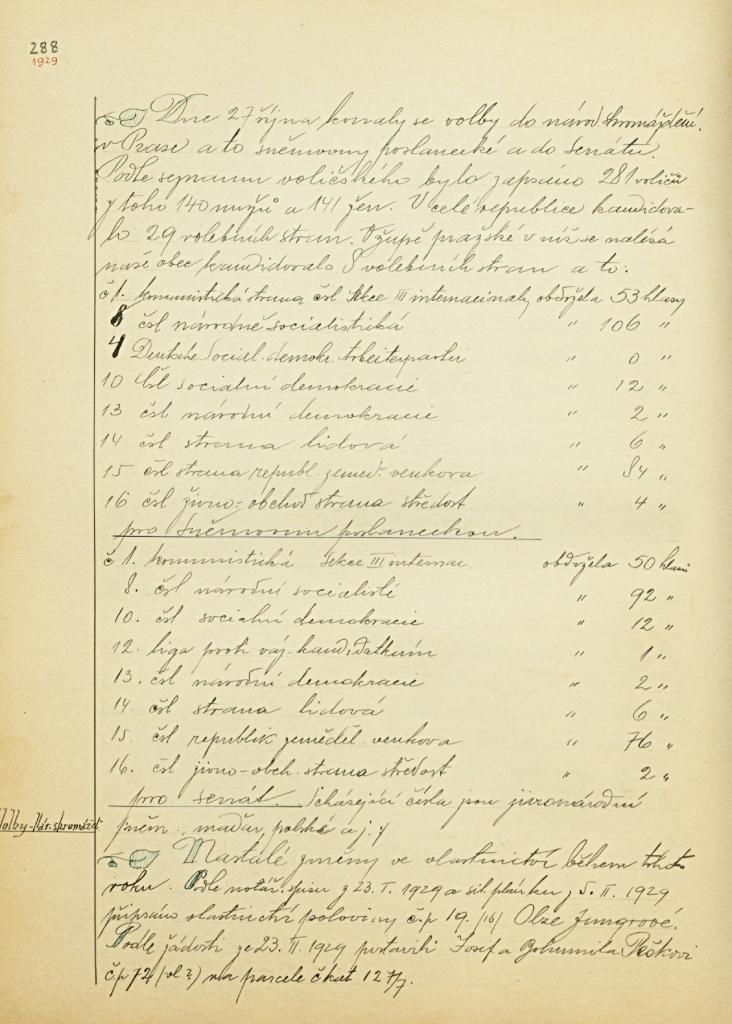 288
1929
Dne 27 října konaly se volby do národ. shromáždění.
v Praze a to sněmovny poslanecké a do Senátu.
Podle seznamu voličského bylo zapsáno 281 voličů
z toho 140 mužů a 141 žen. V celé republice kandidova-
lo 29 volebních stran. V župě pražské v níž se nalézá
naše obec kandidovalo 8 volebních stran a to:
č 1. komunistická strana čsl Sekce III internacionaly obdržela 53 hlasy
8 čsl národně socialistická " 106 "
4 Deutsche Social. demokr. Arbeiterpartei " 0 "
10 čsl socialní demokracie " 12 "
13 čsl národní demokracie " 2 "
14 čsl strana lidová " 6 "
15 čsl strana republ. zeměd. venkova " 84 "
16 čsl živno-obchod strana středost " 4 "
pro Sněmovnu poslaneckou.
č 1. komunistická sekce III internac obdržela 50 hlasů
8. čsl národní socialisté " 92 "
10. čsl socialní demokracie " 12 "
12. liga proti váz. kandidátkám " 1 "
13. čsl národní demokracie " 2 "
14. čsl strana lidová " 6 "
15. čsl republik zeměděl. venkova " 76 "
16. čsl živno-obch. strana středost " 2 "
pro senát. Scházející čísla jsou
maďar, polské a j.
Volby-Nár. shromážd.
Nastálé změny ve vlastnictví během tohoto
roku. Podle notář. spisu z 23. I. 1929 a sit. plánku z 5. II. 1929
připsáno vlastnictví poloviny č.p 19. /16/ Olze Jungrové.
Podle žádosti ze 23. II. 1929 postavili Josef a Bohumila Peškovi
č.p 72 /vl ?/ na parcele č kat 127/7.